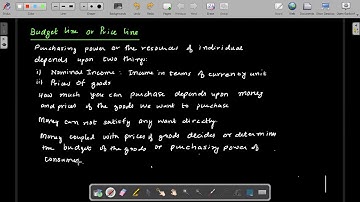 Budget line or Price line
Purchasing power or the resources of individual
depends upon two thing:
i) Nominal Income : Income in terms of currency unit
ii) Prices of goods
How much you can purchase depends upon money
and prices of the goods we want to purchase
Money can not satisfy any want directly
Money coupled with prices of goods decides or determine
the budget of the goods or purchasing power of
consumer.